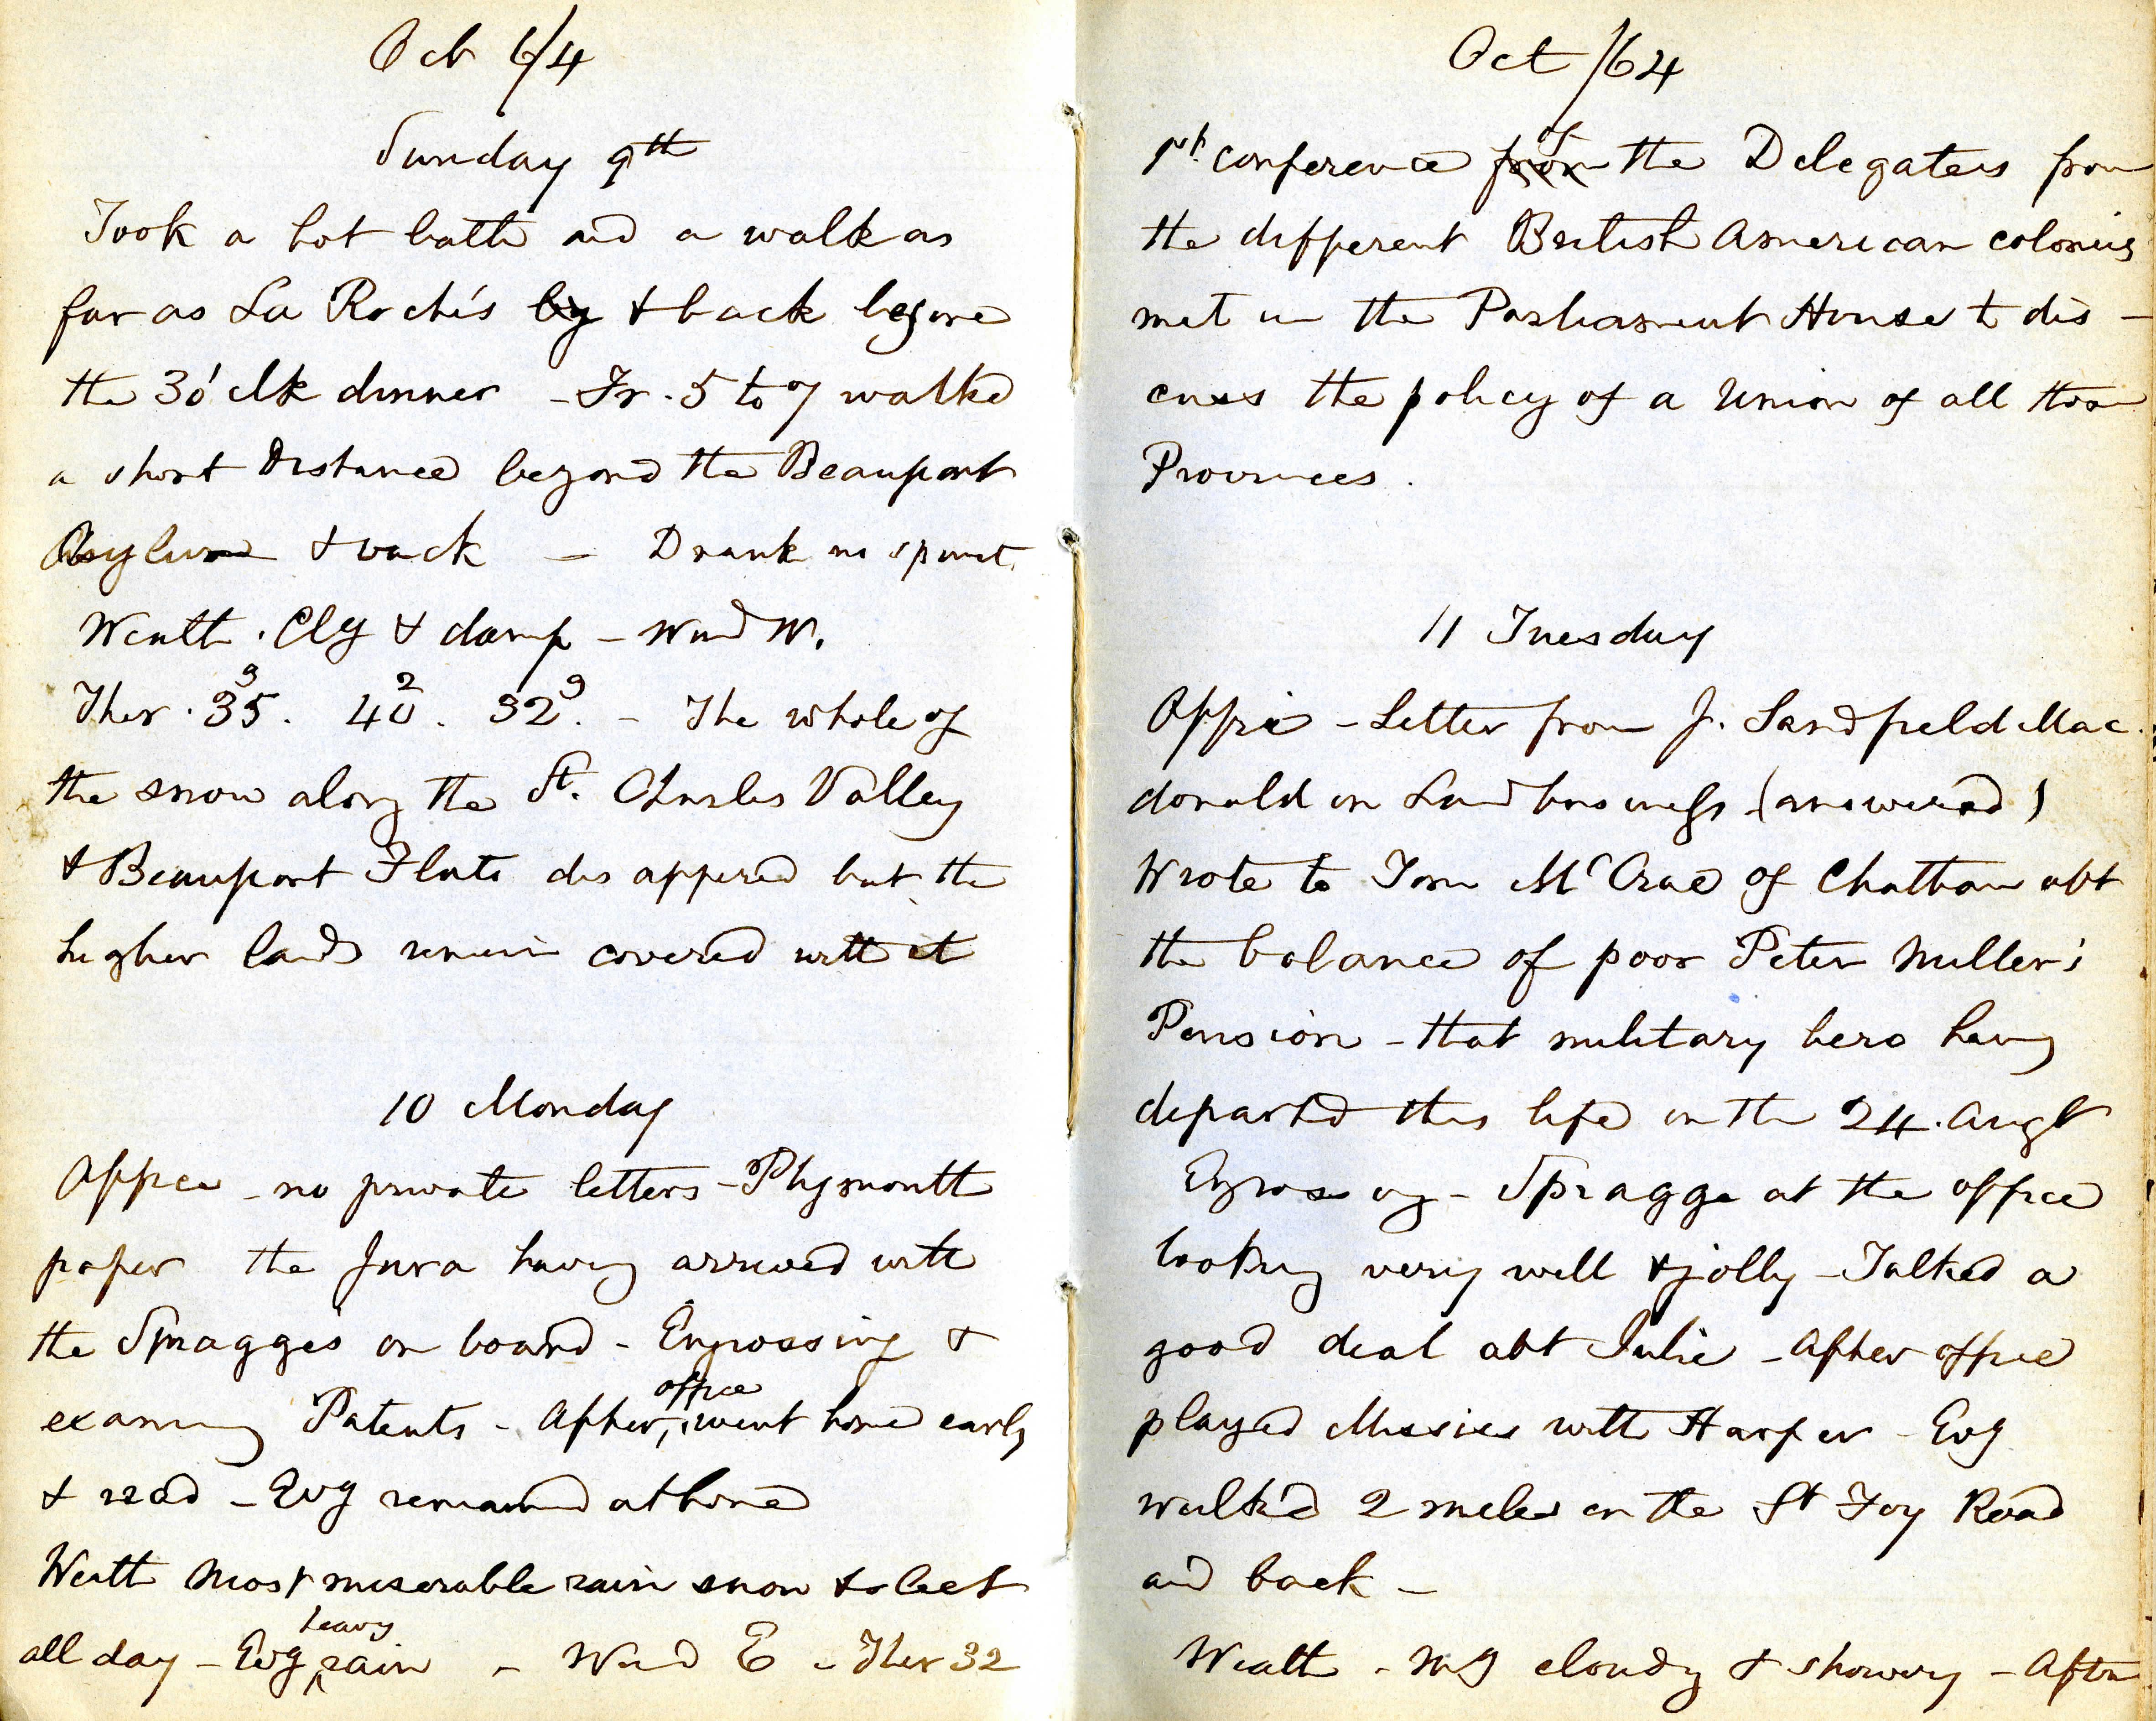 Oct 6/4
Sunday 9th
Took a hot bath and a walk as
far as La Roche's by & back before
the 3 o'clk dinner - Fr. 5 to 7 walked
a short distance beyond the Beauport
Asylum & back - Drank no spirit.
Weath. Cly & damp - Wind W.
Ther. 35. 40. 32. - The whole of
the snow along the St. Charles Valley
& Beauport Flats disappered but the
higher lands remain covered with it
10 Monday
Office - no private letters - Plymouth
paper the Jura having arrived with
the Spragges on board - Engrossing &
examing Patents - After office, went home early
& read - Evg remained at home
Weath most miserable rain snow & sleet
all day - Evg heavy rain - Wind E - Ther 32
Oct /64
1st. conference from of the Delegates from
the different British American colonies
met in the Parliament House to dis -
cuss the policy of a Union of all the
Provinces.
11 Tuesday
Office - Letter from J. Sandfield Mac.
donald on Land business (answered)
Wrote to Tom McCrae of Chatham abt
the balance of poor Peter Miller's
Pension - that military hero having
departed this life on the 24. Augt
Engrossing - Spragge at the office
looking very well & jolly - Talked a
good deal abt Julie - After office
played with Harper - Evg
walked 2 miles on the St Foy Road
and back -
Weath - Mg cloudy & showery - Aftn